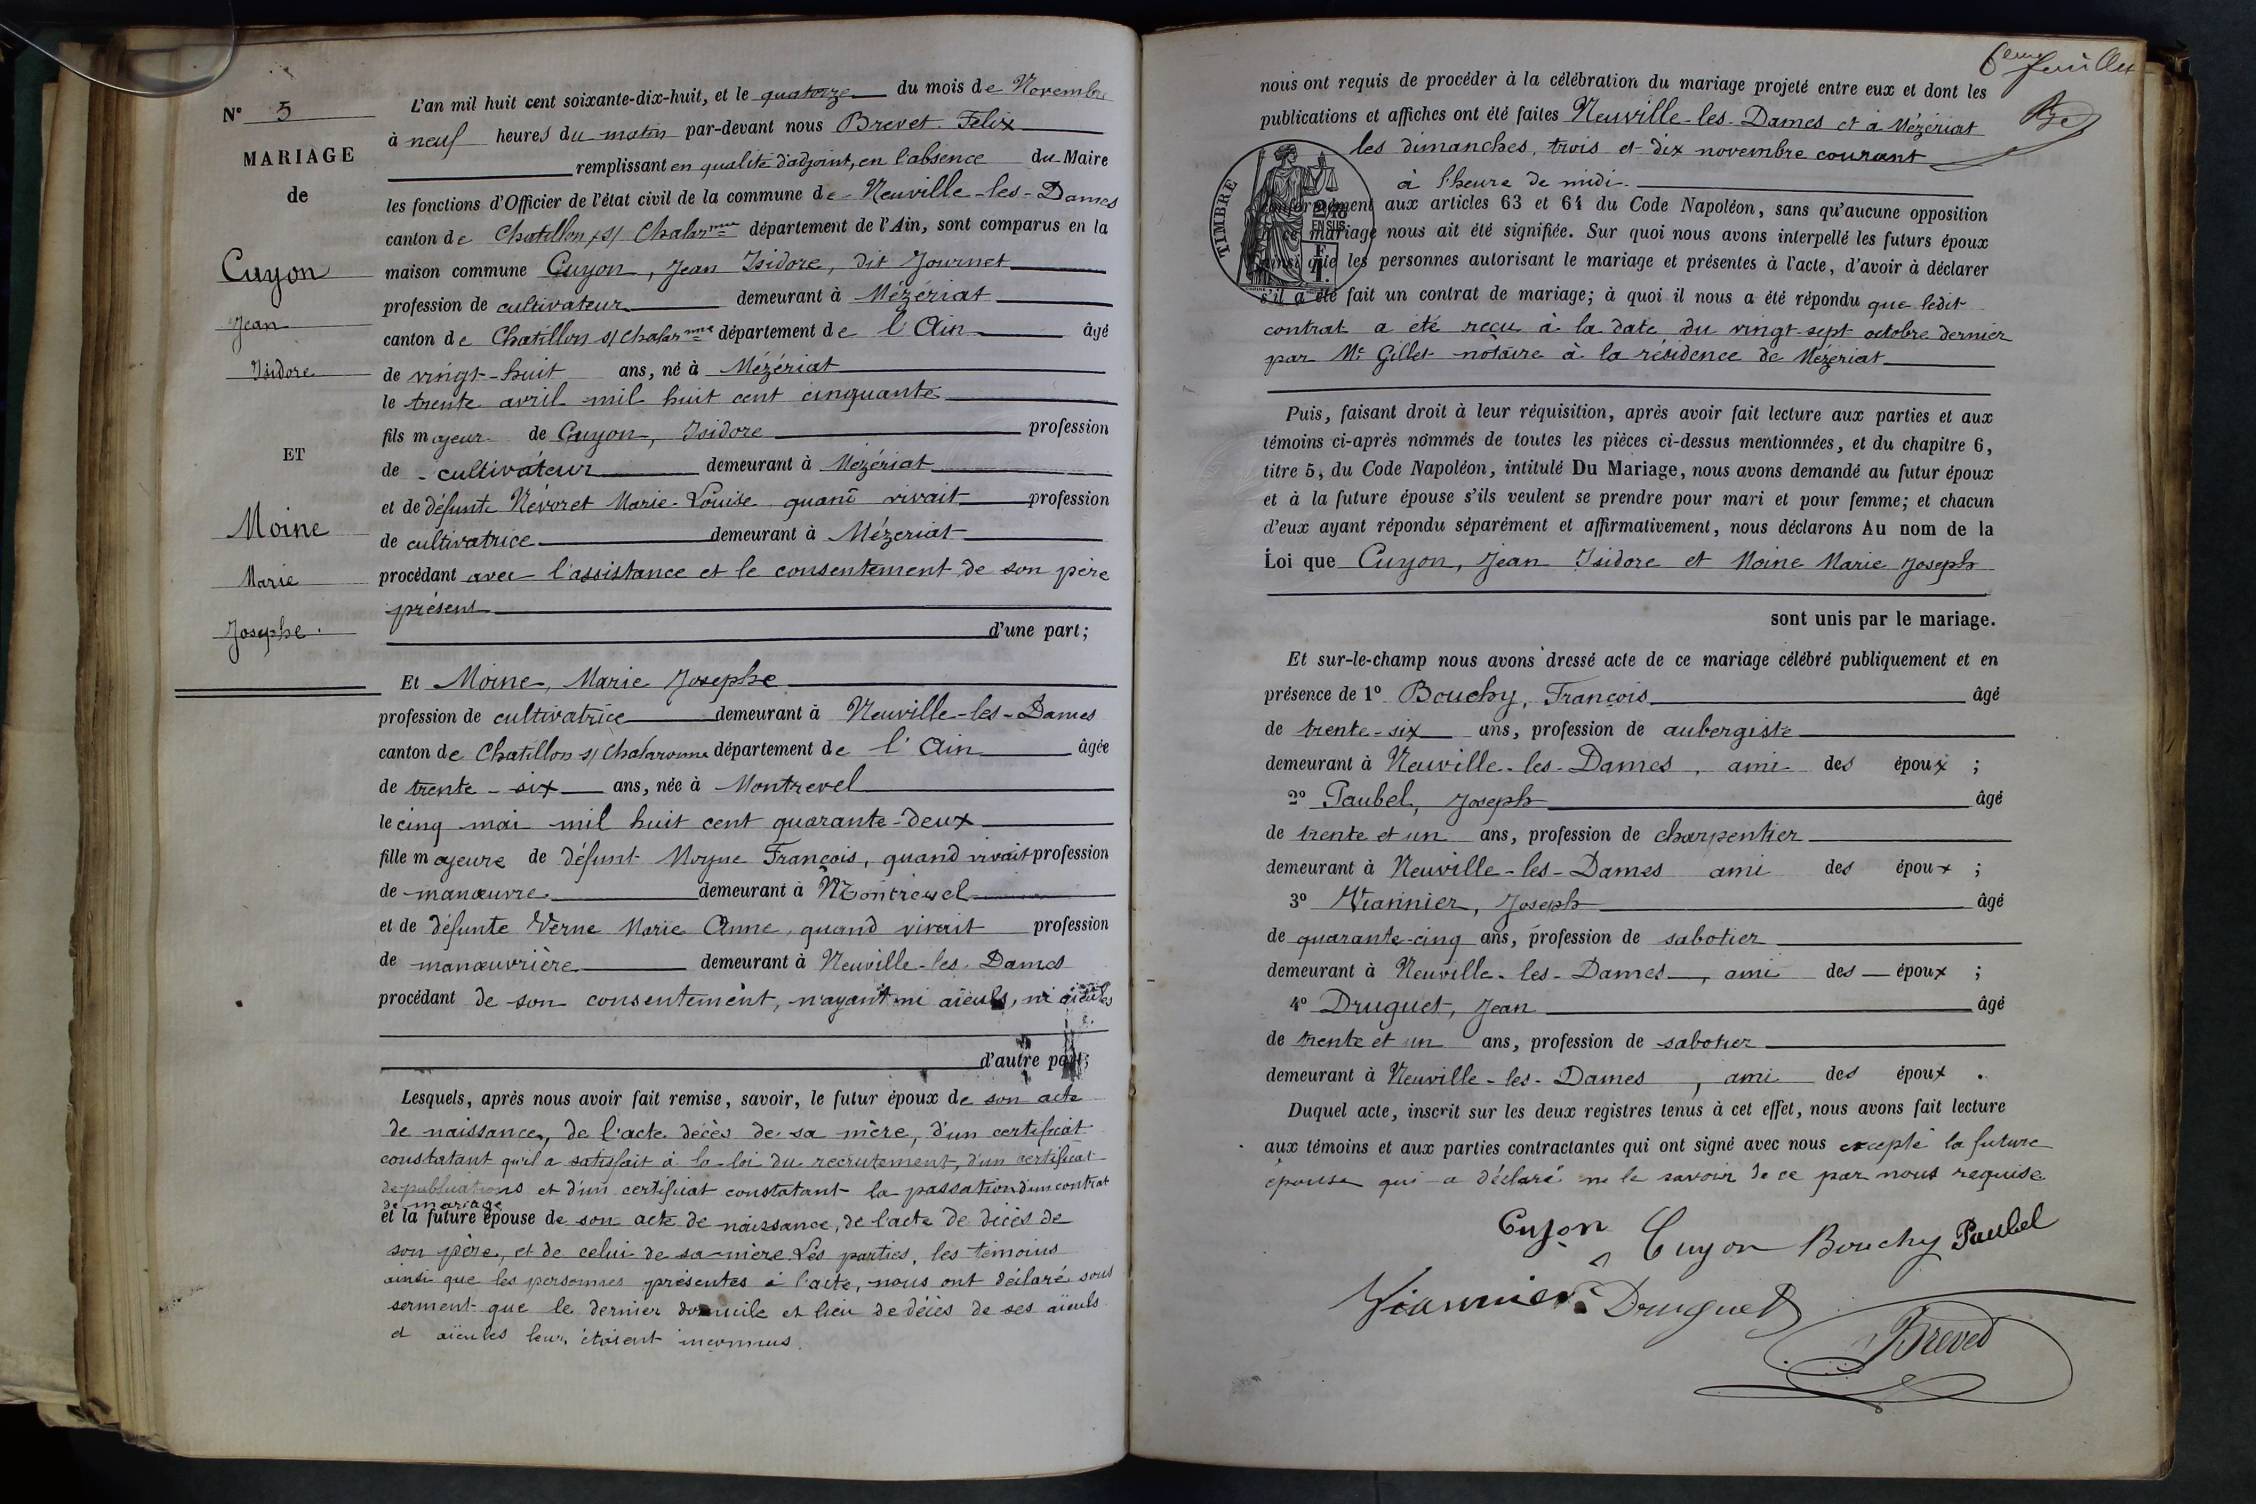 N° 5
MARIAGE
de
Guyon
Jean
Isidore
ET
Moine
Marie
Josephe.
L'an mil huit cent soixante-dix-huit, et le quatorze du mois de Novembre
à neuf heures du matin par-devant nous Brevet Felix
remplissant en qualité d'adjoint, en l'absence du Maire
les fonctions d'Officier de l'état civil de la commune de Neuville-les-Dames
canton de Chatillon s/ Chalarnne département de l'Ain, sont comparus en la
maison commune Guyon, Jean Isidore, dit Journet
profession de cultivateur demeurant à Mézériat
canton de Chatillon s/ Chalarnne département de l'Ain âgé
de vingt-huit ans, né à Mézériat
le trente avril mil huit cent cinquante
fils majeur de Guyon, Isidore profession
de cultivateur demeurant à Mézériat
et de défunte Névoret Marie-Louise quand vivait profession
de cultivatrice demeurant à Mézeriat
procédant avec l'assistance et le consentement de son père
présent
d'une part;
Et Moine, Marie Josephe
profession de cultivatrice demeurant à Neuville-les-Dames
canton de Chatillon s/ Chalaronne département de l'Ain âgée
de trente-six ans, née à Montrevel
le cinq mai mil huit cent quarante-deux
fille majeure de défunt Moyne François, quand vivait profession
de manœuvre demeurant à Montrevel
et de défunte Verne Marie Anne, quand vivait profession
de manœuvrière demeurant à Neuville-les-Dames
procédant de son consentement, n'ayant ni aïeuls, ni aïeules
d'autre part;
Lesquels, après nous avoir fait remise, savoir, le futur époux de son acte
de naissance, de l'acte décès de sa mère, d'un certificat
constatant qu'il a satisfait à la loi du recrutement, d'un certificat
de publications et d'un certificat constatant la passation d'un contrat
de mariage
et la future épouse de son acte de naissance, de l'acte de décès de
son père, et de celui de sa mère. Les parties, les témoins
ainsi que les personnes présentes à l'acte, nous ont déclaré sous
serment que le dernier domicile et lieu de décès de ses aïeuls
et aïeules leur étaient inconnus.
6eme feuillet
nous ont requis de procéder à la célébration du mariage projeté entre eux et dont les
publications et affiches ont été faites Neuville-les-Dames et à Mézériat
les dimanches, trois et dix novembre courant
à l'heure de midi.
TIMBRE
2/10
EN SUS
conformément aux articles 63 et 64 du Code Napoléon, sans qu'aucune opposition
ce mariage nous ait été signifiée. Sur quoi nous avons interpellé les futurs époux
ainsi que les personnes autorisant le mariage et présentes à l'acte, d'avoir à déclarer
s'il a été fait un contrat de mariage; à quoi il nous a été répondu que ledit
contrat a été reçu à la date du vingt-sept octobre dernier
par Me Gillet notaire à la résidence de Mézériat
Puis, faisant droit à leur réquisition, après avoir fait lecture aux parties et aux
témoins ci-après nommés de toutes les pièces ci-dessus mentionnées, et du chapitre 6,
titre 5, du Code Napoléon, intitulé Du Mariage, nous avons demandé au futur époux
et à la future épouse s'ils veulent se prendre pour mari et pour femme; et chacun
d'eux ayant répondu séparément et affirmativement, nous déclarons Au nom de la
Loi que Guyon, Jean Isidore et Moine Marie Joseph
sont unis par le mariage.
Et sur-le-champ nous avons dressé acte de ce mariage célébré publiquement et en
présence de 1° Bouchy, François âgé
de trente-six ans, profession de aubergiste
demeurant à Neuville-les-Dames, ami des époux ;
2° Paubel, Joseph âgé
de trente et un ans, profession de charpentier
demeurant à Neuville-les-Dames ami des époux ;
3° Viannier, Joseph âgé
de quarante-cinq ans, profession de sabotier
demeurant à Neuville-les-Dames, ami des époux ;
4° Druguet, Jean âgé
de trente et un ans, profession de sabotier
demeurant à Neuville-les-Dames, ami des époux .
Duquel acte, inscrit sur les deux registres tenus à cet effet, nous avons fait lecture
aux témoins et aux parties contractantes qui ont signé avec nous excepté la future
épouse qui a déclaré ne le savoir de ce par nous requise
Guyon Guyon Bouchy Paubel
Viannier Druguet
Brevet